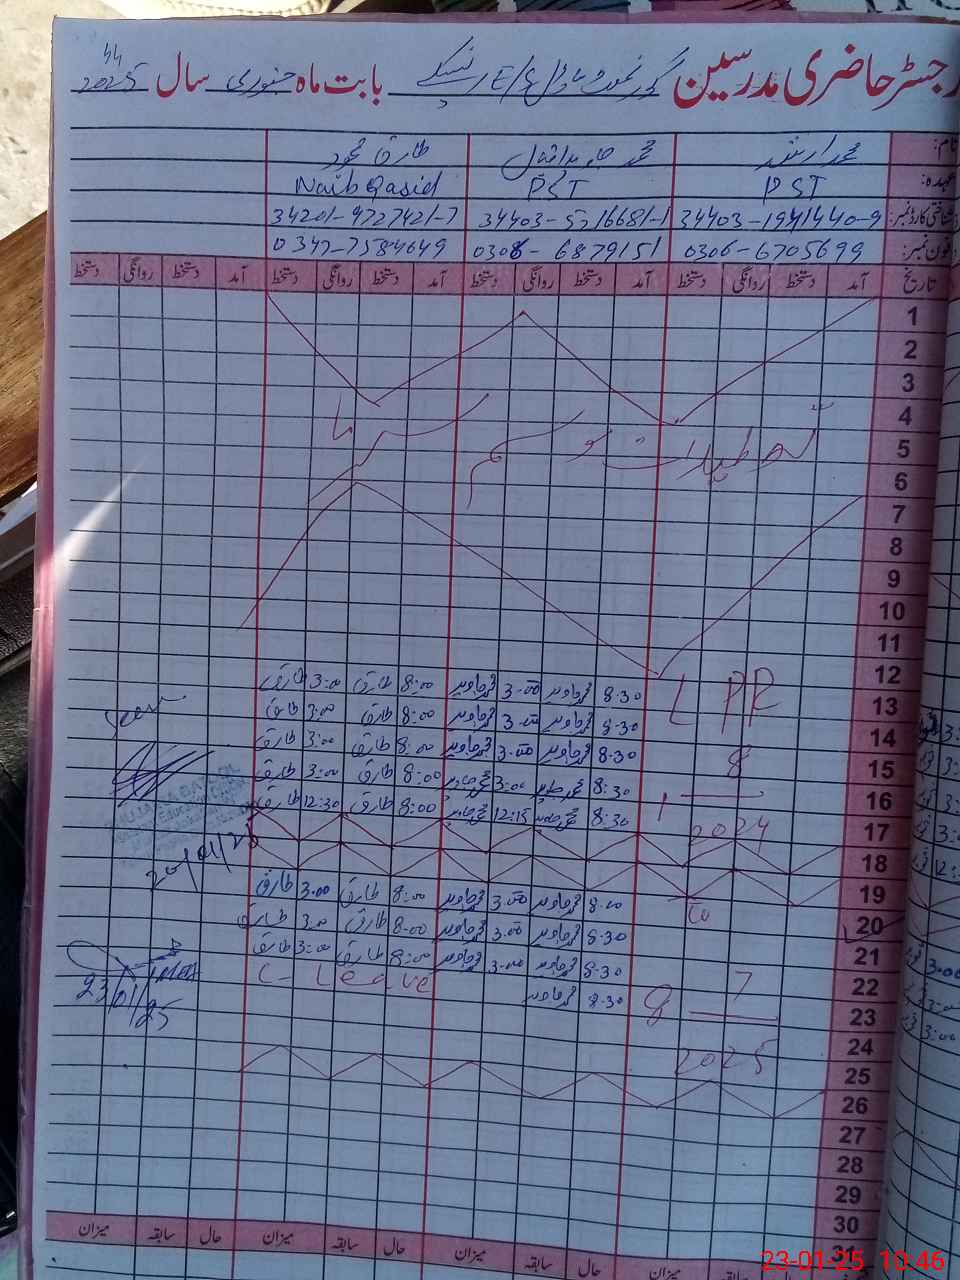 رجسٹر حاضری مدرسین بابت ماہ جنوری سال 2025
44
نام: محمد ارشد محمد جاوید اقبال طارق محمود
عہدہ: PST PST Naib Qasid
شناختی کارڈ نمبر: 34403-1941440-9 34201-9727421-7
فون نمبر: 0306-6705699 0308-6879151
تاریخ آمد دستخط روانگی دستخط آمد دستخط روانگی دستخط آمد دستخط روانگی دستخط دستخط روانگی دستخط
1
2
3
4
تعطیلات موسم سرما
5
6
7
8
9
10
11
12
LPR 8.30 محمد جاوید 3.00 محمد جاوید 8:00 طارق 3:00 طارق
13
8.30 محمد جاوید 3.00 محمد جاوید 8:00 طارق 3:00 طارق
14
8.30 محمد جاوید 3.00 محمد جاوید 8:00 طارق 3:00 طارق
15
8 8:30 محمد جاوید 3:00 محمد جاوید 8:00 طارق 3:00 طارق
16
1 8:30 محمد جاوید 12:15 محمد جاوید 8:00 طارق 12:30 طارق
17
2024
18
19
To 8.00 محمد جاوید 3.00 محمد جاوید 8:00 طارق 3.00 طارق
20
20/01/25
8.30 محمد جاوید 3.00 محمد جاوید 8.00 طارق 3:00 طارق
21
8.30 محمد جاوید 3.00 محمد جاوید 8:00 طارق 3:00 طارق
22
7 8.30 محمد جاوید C-Leave
23
8
23/01/25
24
2025
25
26
27
28
29
30
میزان سابقہ حال میزان سابقہ حال میزان سابقہ حال میزان
23-01-25 10:46